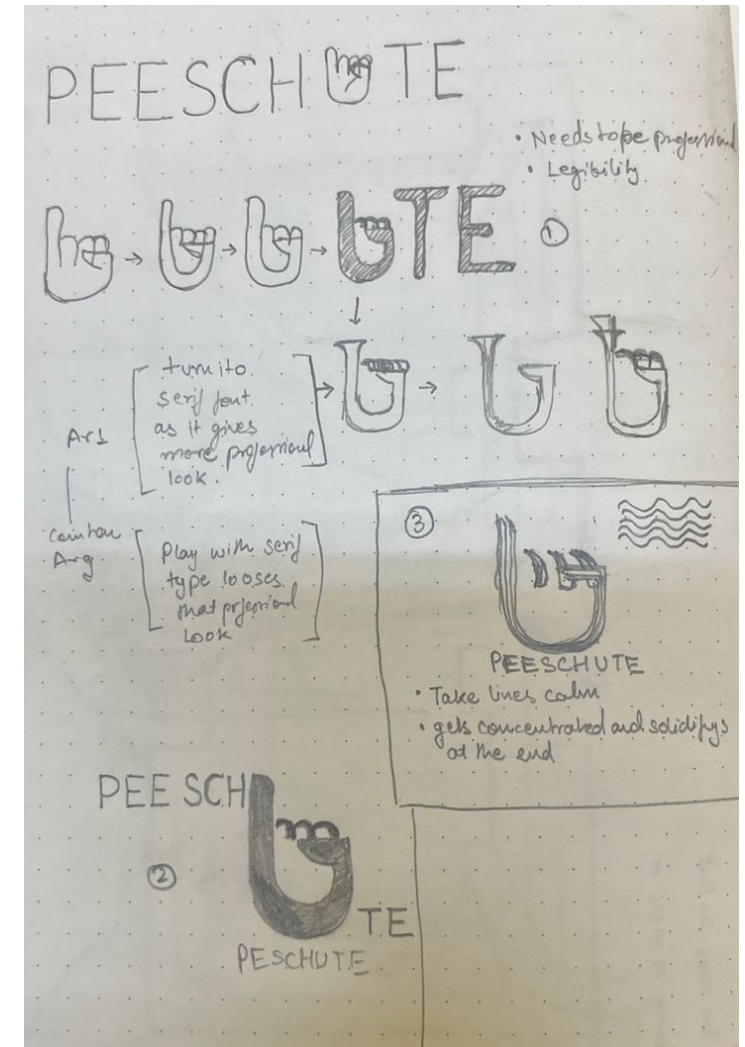 PEESCHUTE
• Needs to be professional
• Legibility
UTE
①
turn ito
serif font
as it gives
more professional
look.
Play with serif
type looses
that professional
look
③
PEESCHUTE
• Take lines calm
• gets concentrated and solidifys
at the end
PEESCHU
②
TE
PESCHUTE